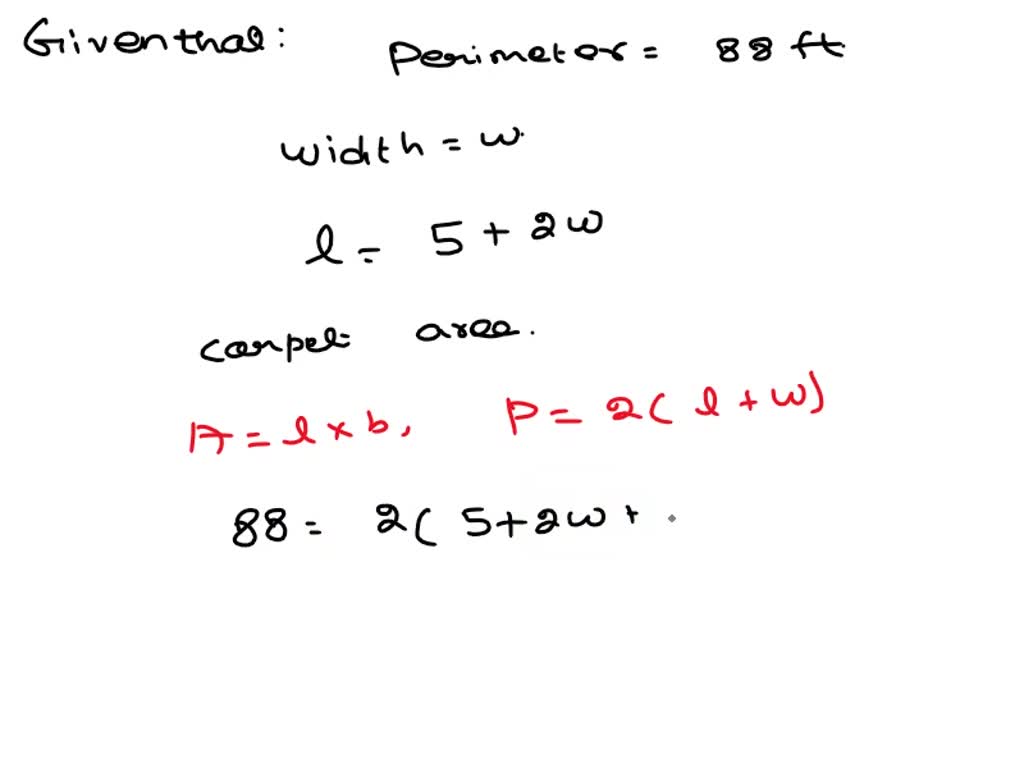 Given that: Perimeter = 88 ft
width = w
l = 5 + 2w
carpet area.
A = l × b, P = 2( l + w)
88 = 2( 5+2w +